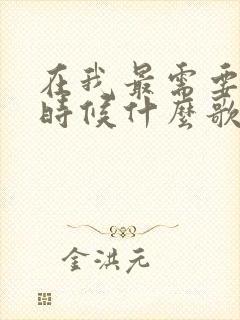 在我最需要
時候什麼歌
金洪元